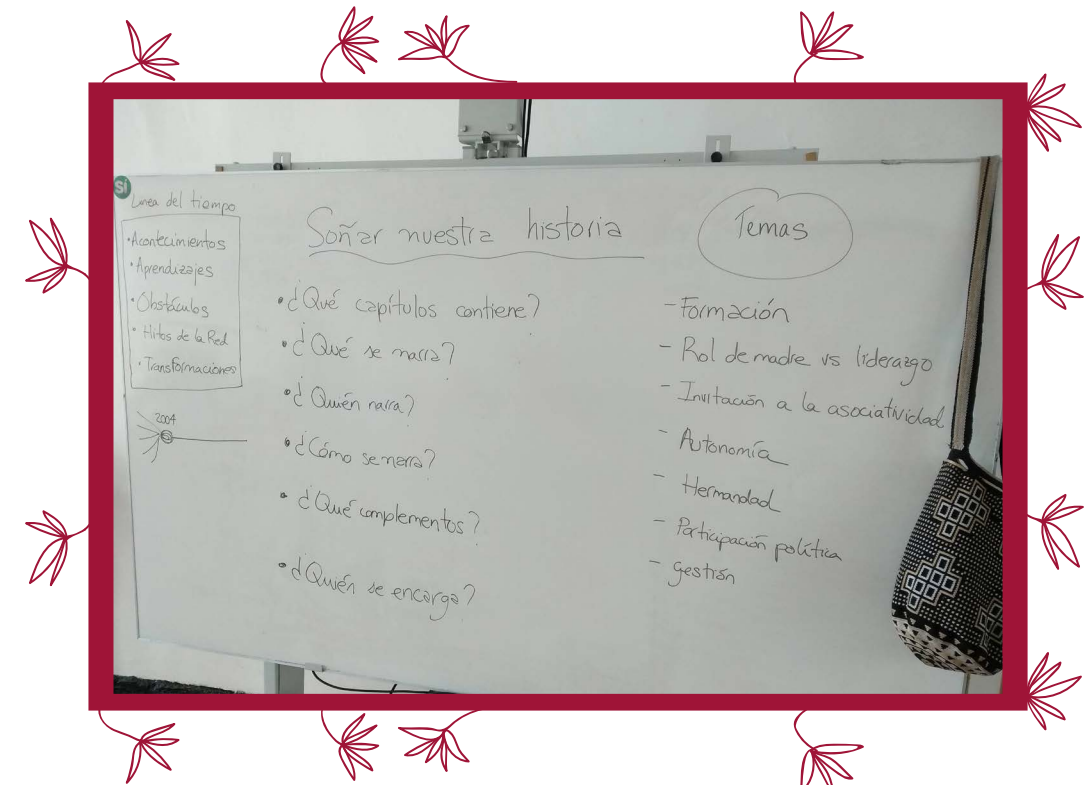 Sí
Linea del tiempo
•Acontecimientos
•Aprendizajes
•Obstáculos
•Hitos de la Red
•Transformaciones
2004
Soñar nuestra historia
•¿Qué capítulos contiene?
•¿Qué se narra?
•¿Quién narra?
•¿Cómo se narra?
•¿Qué complementos?
•¿Quién se encarga?
Temas
-Formación
- Rol de madre vs liderazgo
- Invitación a la asociatividad
- Autonomía
- Hermandad
- Participación política
- gestión